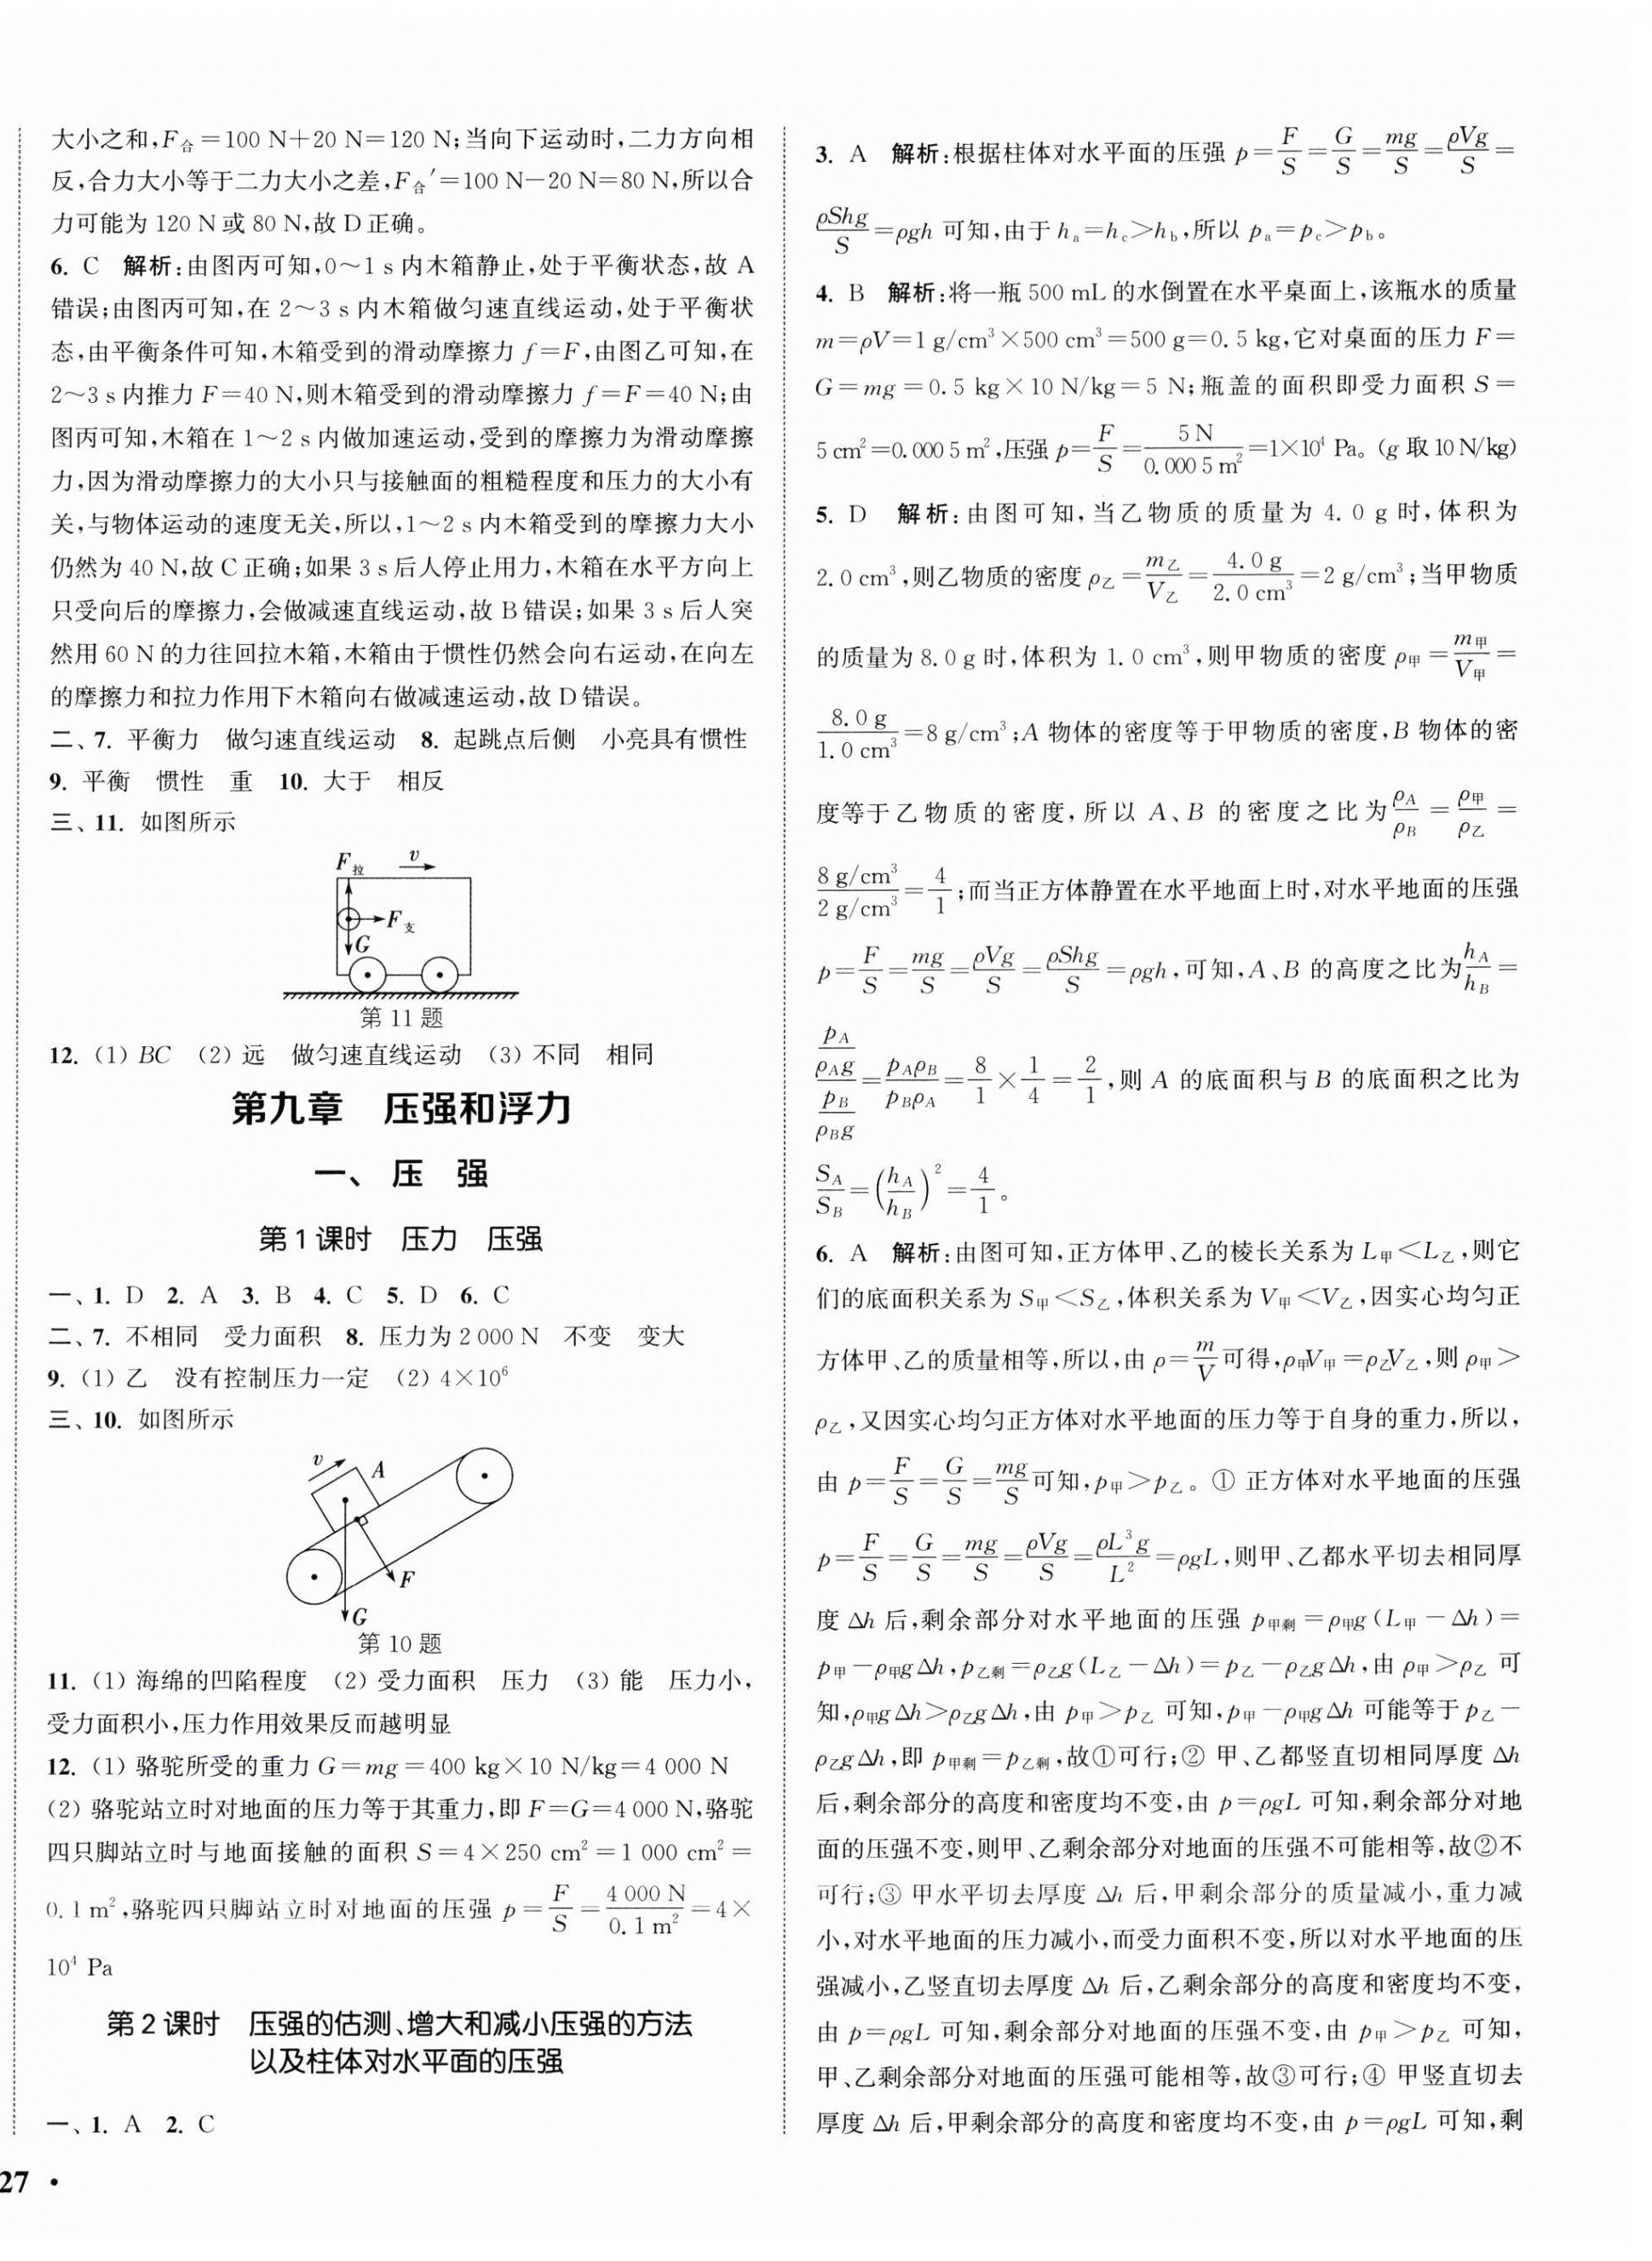 大小之和,F合=100 N+20 N=120 N;当向下运动时,二力方向相
反,合力大小等于二力大小之差,F合′=100 N-20 N=80 N,所以合
力可能为 120 N 或 80 N,故 D 正确。
6. C 解析:由图丙可知,0~1 s 内木箱静止,处于平衡状态,故 A
错误;由图丙可知,在 2~3 s 内木箱做匀速直线运动,处于平衡状
态,由平衡条件可知,木箱受到的滑动摩擦力 f=F,由图乙可知,在
2~3 s 内推力 F=40 N,则木箱受到的滑动摩擦力 f=F=40 N;由
图丙可知,木箱在 1~2 s 内做加速运动,受到的摩擦力为滑动摩擦
力,因为滑动摩擦力的大小只与接触面的粗糙程度和压力的大小有
关,与物体运动的速度无关,所以,1~2 s 内木箱受到的摩擦力大小
仍然为 40 N,故 C 正确;如果 3 s 后人停止用力,木箱在水平方向上
只受向后的摩擦力,会做减速直线运动,故 B 错误;如果 3 s 后人突
然用 60 N 的力往回拉木箱,木箱由于惯性仍然会向右运动,在向左
的摩擦力和拉力作用下木箱向右做减速运动,故 D 错误。
二、7. 平衡力 做匀速直线运动 8. 起跳点后侧 小亮具有惯性
9. 平衡 惯性 重 10. 大于 相反
三、11. 如图所示
F拉 v
F支
G
第 11 题
12. (1) BC (2) 远 做匀速直线运动 (3) 不同 相同
第九章 压强和浮力
一、压 强
第 1 课时 压力 压强
一、1. D 2. A 3. B 4. C 5. D 6. C
二、7. 不相同 受力面积 8. 压力为 2 000 N 不变 变大
9. (1) 乙 没有控制压力一定 (2) 4×10⁶
三、10. 如图所示
v A
F
G
第 10 题
11. (1) 海绵的凹陷程度 (2) 受力面积 压力 (3) 能 压力小,
受力面积小,压力作用效果反而越明显
12. (1) 骆驼所受的重力 G=mg=400 kg×10 N/kg=4 000 N
(2) 骆驼站立时对地面的压力等于其重力,即 F=G=4 000 N,骆驼
四只脚站立时与地面接触的面积 S=4×250 cm²=1 000 cm²=
0. 1 m²,骆驼四只脚站立时对地面的压强 p=F/S=4 000 N/0. 1 m²=4×
10⁴ Pa
第 2 课时 压强的估测、增大和减小压强的方法
以及柱体对水平面的压强
一、1. A 2. C
27 •
3. A 解析:根据柱体对水平面的压强 p=F/S=G/S=mg/S=ρVg/S=
ρShg/S=ρgh 可知,由于 hₐ=h꜀>h_b,所以 pₐ=p꜀>p_b。
4. B 解析:将一瓶 500 mL 的水倒置在水平桌面上,该瓶水的质量
m=ρV=1 g/cm³×500 cm³=500 g=0. 5 kg,它对桌面的压力 F=
G=mg=0. 5 kg×10 N/kg=5 N;瓶盖的面积即受力面积 S=
5 cm²=0. 000 5 m²,压强 p=F/S=5 N/0. 000 5 m²=1×10⁴ Pa。(g 取 10 N/kg)
5. D 解析:由图可知,当乙物质的质量为 4. 0 g 时,体积为
2. 0 cm³,则乙物质的密度 ρ乙=m乙/V乙=4. 0 g/2. 0 cm³=2 g/cm³;当甲物质
的质量为 8. 0 g 时,体积为 1. 0 cm³,则甲物质的密度 ρ甲=m甲/V甲=
8. 0 g/1. 0 cm³=8 g/cm³;A 物体的密度等于甲物质的密度,B 物体的密
度等于乙物质的密度,所以 A、B 的密度之比为 ρA/ρB=ρ甲/ρ乙=
8 g/cm³/2 g/cm³=4/1;而当正方体静置在水平地面上时,对水平地面的压强
p=F/S=mg/S=ρVg/S=ρShg/S=ρgh,可知,A、B 的高度之比为 hA/hB=
(pA/ρAg)/(pB/ρBg)=pAρB/pBρA=8/1×1/4=2/1,则 A 的底面积与 B 的底面积之比为
SA/SB=(hA/hB)²=4/1。
6. A 解析:由图可知,正方体甲、乙的棱长关系为 L甲<L乙,则它
们的底面积关系为 S甲<S乙,体积关系为 V甲<V乙,因实心均匀正
方体甲、乙的质量相等,所以,由 ρ=m/V 可得,ρ甲V甲=ρ乙V乙,则 ρ甲>
ρ乙,又因实心均匀正方体对水平地面的压力等于自身的重力,所以,
由 p=F/S=G/S=mg/S 可知,p甲>p乙。① 正方体对水平地面的压强
p=F/S=G/S=mg/S=ρVg/S=ρL³g/L²=ρgL,则甲、乙都水平切去相同厚
度 Δh 后,剩余部分对水平地面的压强 p甲剩=ρ甲g(L甲-Δh)=
p甲-ρ甲gΔh,p乙剩=ρ乙g(L乙-Δh)=p乙-ρ乙gΔh,由 ρ甲>ρ乙 可
知,ρ甲gΔh>ρ乙gΔh,由 p甲>p乙 可知,p甲-ρ甲gΔh 可能等于 p乙-
ρ乙gΔh,即 p甲剩=p乙剩,故①可行;② 甲、乙都竖直切相同厚度 Δh
后,剩余部分的高度和密度均不变,由 p=ρgL 可知,剩余部分对地
面的压强不变,则甲、乙剩余部分对地面的压强不可能相等,故②不
可行;③ 甲水平切去厚度 Δh 后,甲剩余部分的质量减小,重力减
小,对水平地面的压力减小,而受力面积不变,所以对水平地面的压
强减小,乙竖直切去厚度 Δh 后,乙剩余部分的高度和密度均不变,
由 p=ρgL 可知,剩余部分对地面的压强不变,由 p甲>p乙 可知,
甲、乙剩余部分对地面的压强可能相等,故③可行;④ 甲竖直切去
厚度 Δh 后,甲剩余部分的高度和密度均不变,由 p=ρgL 可知,剩